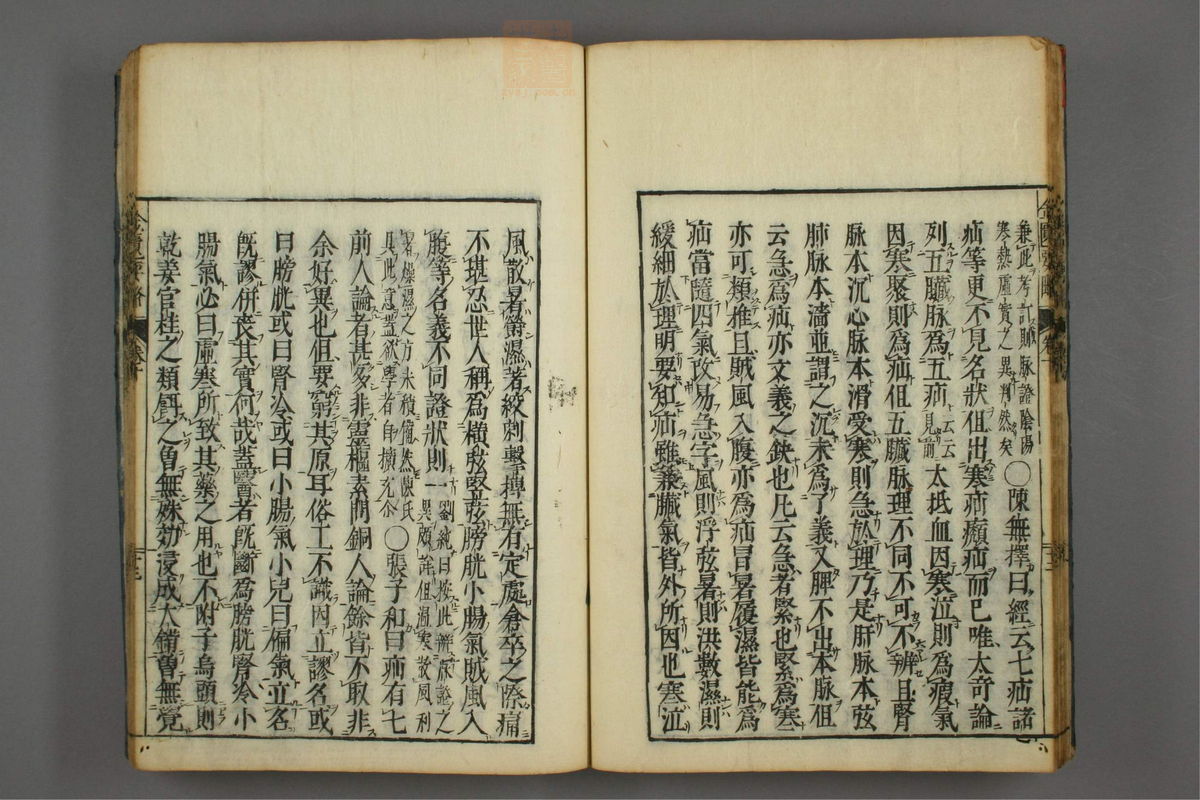 兼此考訂脈證陰陽
寒熱虛實之異判然矣
○陳無擇曰經云七疝諸
疝等更不見名狀但出寒疝癩疝而已唯太奇論
列五臟脈爲五疝
云云
見前
太抵血因寒泣則爲瘕氣
因寒聚則爲疝但五臟脈理不同不可不辨且腎
脈本沉心脈本滑受寒則急於理乃是肝脈本弦
肺脈本濇並謂之沉未爲了義又脾不出本脈但
云急爲疝亦文義之缺也凡云急者緊也緊爲寒
亦可類推且賊風入腹亦爲疝冒暑履濕皆能爲
疝當隨四氣改易急字風則浮弦暑則洪數濕則
緩細於理明要知疝雖兼臟氣皆外所因也寒泣
風散暑鬱濕著絞刺擊搏無有定處倉卒之際痛
不堪忍世人稱爲橫弦竪弦膀胱小腸氣賊風入
腹等名義不同證狀則一
劉純曰按此辨原證之
異頗詳但溫寒散風利
濕燥濕之方未積備然陳氏
其此意蓋欲學者自擴充介
○張子和曰疝有七
前人論者甚多非靈樞素問銅人論餘皆不取非
余好異也但要窮其原耳俗工不識因立謬名或
曰膀胱或曰腎冷或曰小腸氣小兒曰偏氣立名
旣謬併喪其實何哉蓋醫者旣斷爲膀胱腎冷小
腸氣必曰虛寒所致其藥之用也不附子烏頭則
乾姜官桂之類餌之曾無殊効浸成大錯曾無覺